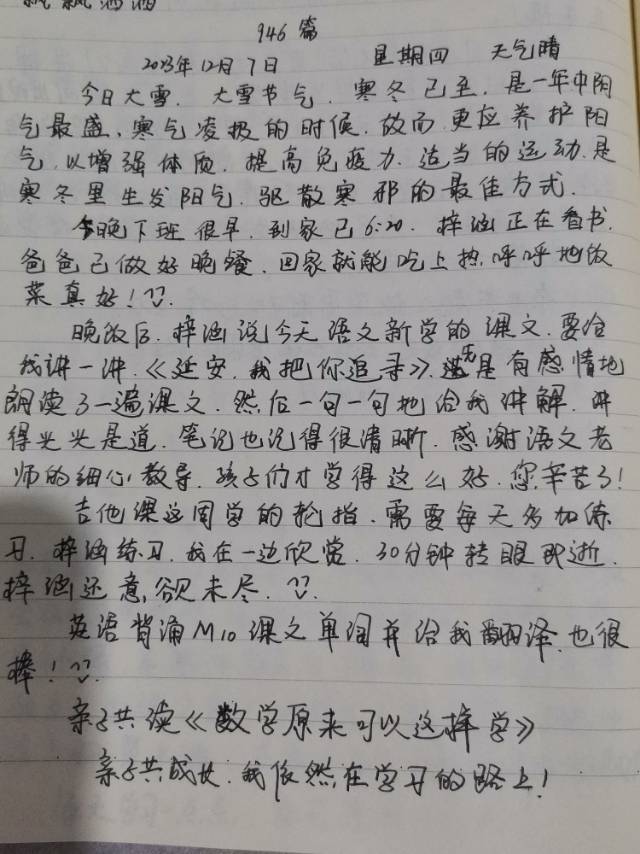 946篇
2023年12月7日 星期四 天气晴
今日大雪. 大雪节气. 寒冬已至, 是一年中阴
气最盛, 寒气凌极的时候. 故而更应养护阳
气, 以增强体质. 提高免疫力. 适当的运动. 是
寒冬里生发阳气. 驱散寒邪的最佳方式.
今晚下班很早. 到家已6:20. 梓涵正在看书.
爸爸已做好晚餐. 回家就能吃上热呼呼地饭
菜真好!
晚饭后. 梓涵说今天语文新学的课文. 要给
我讲一讲.《延安, 我把你追寻》. 先是有感情地
朗读了一遍课文. 然后一句一句地给我讲解. 讲
得头头是道. 笔记也记得很清晰. 感谢语文老
师的细心教导. 孩子们才学得这么好. 您辛苦了!
吉他课这周学的轮指. 需要每天多加练
习. 梓涵练习. 我在一边欣赏. 30分钟转眼即逝.
梓涵还意欲未尽.
英语背诵M10课文单词并给我翻译. 也很
棒!
亲子共读《数学原来可以这样学》
亲子共成长. 我依然在学习的路上!